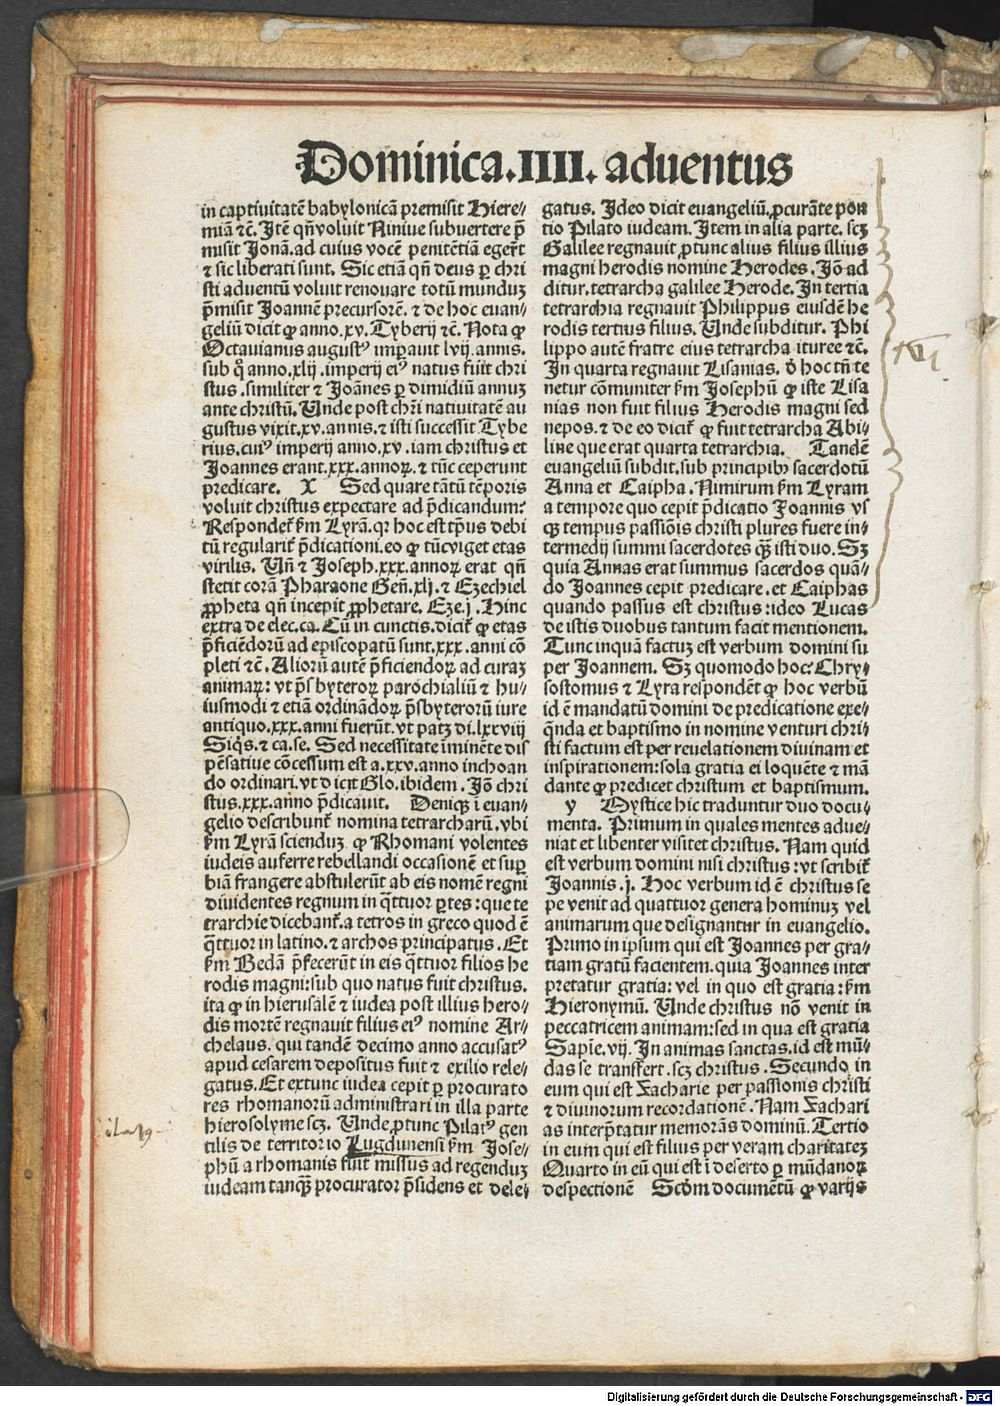 Dominica.IIII. aduentus
in captiuitatē babylonicā premisit Hiere⸗
miā ꝛc̄. Itē qn̄ voluit Niniue subuertere p̄
misit Jonā.ad cuius vocē penitētiā egerūt
⁊ sic liberati sunt. Sic etiā qn̄ deus ꝑ chri
sti aduentū voluit renouare totū munduꝫ
p̄misit Joannē precursorē. ⁊ de hoc euan⸗
geliū dicit ꝙ anno.xv. Tyberij ꝛc̄. Nota ꝙ
Octauianus augustꝰ imꝑauit lvij.annis.
sub q̊ anno.xlij.imperij eiꝰ natus fuit chri
stus.similiter ⁊ Joānes ꝑ dimidiū annuꝫ
ante christū. Unde post chr̄i natiuitatē au
gustus vixit.xv.annis.⁊ isti successit Tybe
rius.cuiꝰ imperij anno.xv.iam christus et
Joannes erant.xxx.annoꝝ.⁊ tūc ceperunt
predicare. X Sed quare tātū tēporis
voluit christus expectare ad p̄dicandum?
Respondet̄ ẜm Lyrā.qꝛ hoc est tp̄us debi
tū regularit̄ p̄dicationi.eo ꝙ tūc viget etas
virilis. Un̄ ⁊ Joseph.xxx.annoꝝ erat qn̄
stetit corā Pharaone Gen̄.xlj.⁊ Ezechiel
ꝓpheta qn̄ incepit ꝓphetare. Eze.j. Hinc
extra de elec.ca. Cū in cunctis.dicit̄ ꝙ etas
p̄ficiēdorū ad episcopatū sunt.xxx.anni cō
pleti ꝛc̄. Aliorū autē p̄ficiendoꝝ ad curaꝫ
animaꝝ: vt p̄sbyteroꝝ parochialiū ⁊ hu⸗
iusmodi ⁊ etiā ordinādoꝝ p̄sbyterorū iure
antiquo.xxx.anni fuerūt.vt patꝫ di.lxxviij
Siq̄s.⁊ ca.se. Sed necessitate iminēte dis
pēsatiue cōcessum est a.xxv.anno inchoan
do ordinari.vt dicit Glo.ibidem. Jō chri
stus.xxx.anno p̄dicauit. Deniqꝫ ī euan⸗
gelio describunt̄ nomina tetrarcharū.vbi
ẜm Lyrā scienduꝫ ꝙ Rhomani volentes
iudeis auferre rebellandi occasionē et suꝑ
biā frangere abstulerūt ab eis nomē regni
diuidentes regnum in q̄ttuor ꝑtes: que te
trarchie dicebant̄.a tetros in greco quod ē
q̄ttuor in latino.⁊ archos principatus. Et
ẜm Bedā p̄fecerūt in eis q̄ttuor filios he
rodis magni:sub quo natus fuit christus.
ita ꝙ in hierusalē ⁊ iudea post illius hero⸗
dis mortē regnauit filius eiꝰ nomine Ar⸗
chelaus. qui tandē decimo anno accusatꝰ
apud cesarem depositus fuit ⁊ exilio rele⸗
gatus. Et extunc iudea cepit ꝑ procurato
res rhomanorū administrari in illa parte
hierosolyme scꝫ. Unde ꝓtunc Pilatꝰ gen
tilis de territorio Lugdunensi ẜm Jose⸗
phū a rhomanis fuit missus ad regenduꝫ
iudeam tanqꝫ procurator p̄sidens et dele⸗
gatus. Ideo dicit euangeliū.ꝓcurāte pon
tio Pilato iudeam. Item in alia parte. scꝫ
Galilee regnauit ꝓtunc alius filius illius
magni herodis nomine Herodes. Jō ad
ditur.tetrarcha galilee Herode. In tertia
tetrarchia regnauit Philippus eiusdē he
rodis tertius filius. Unde subditur. Phi
lippo autē fratre eius tetrarcha ituree ꝛc̄.
In quarta regnauit Lisanias. ꝺ hoc tn̄ te
netur cōmuniter ẜm Josephū ꝙ iste Lisa
nias non fuit filius Herodis magni sed
nepos.⁊ de eo dicit̄ ꝙ fuit tetrarcha Abi⸗
line que erat quarta tetrarchia. Tandē
euangeliū subdit.sub principibꝰ sacerdotū
Anna et Caipha. Nimirum ẜm Lyram
a tempore quo cepit p̄dicatio Joannis vs
qꝫ tempus passiōis christi plures fuere in⸗
termedij summi sacerdotes qꝫ̄ isti duo. Sꝫ
quia Annas erat summus sacerdos quā⸗
do Joannes cepit predicare.et Caiphas
quando passus est christus:ideo Lucas
de istis duobus tantum facit mentionem.
Tunc inquā factuꝫ est verbum domini su
per Joannem. Sꝫ quomodo hoc? Chry⸗
sostomus ⁊ Lyra respondēt ꝙ hoc verbū
id ē mandatū domini de predicatione exe⸗
q̄nda et baptismo in nomine venturi chri⸗
sti factum est per reuelationem diuinam et
inspirationem:sola gratia ei loquēte ⁊ mā
dante ꝙ predicet christum et baptismum.
y Mystice hic traduntur duo docu⸗
menta. Primum in quales mentes adue⸗
niat et libenter visitet christus. Nam quid
est verbum domini nisi christus:vt scribit̄
Joannis.j. Hoc verbum id ē christus se
pe venit ad quattuor genera hominuꝫ vel
animarum que designantur in euangelio.
Primo in ipsum qui est Joannes per gra⸗
tiam gratū facientem.quia Joannes inter
pretatur gratia: vel in quo est gratia:ẜm
Hieronymū. Unde christus nō venit in
peccatricem animam:sed in qua est gratia
Sapīe.vij. In animas sanctas.id est mū⸗
das se transfert.scꝫ christus. Secundo in
eum qui est Zacharie per passionis christi
⁊ diuinorum recordationē. Nam Zachari
as interp̄tatur memorās dominū. Tertio
in eum qui est filius per veram charitateꝫ
Quarto in eū qui est ī deserto ꝑ mūdanoꝝ
despectionē Scd̄m documētū ꝙ varijs
Digitalisierung gefördert durch die Deutsche Forschungsgemeinschaft - DFG